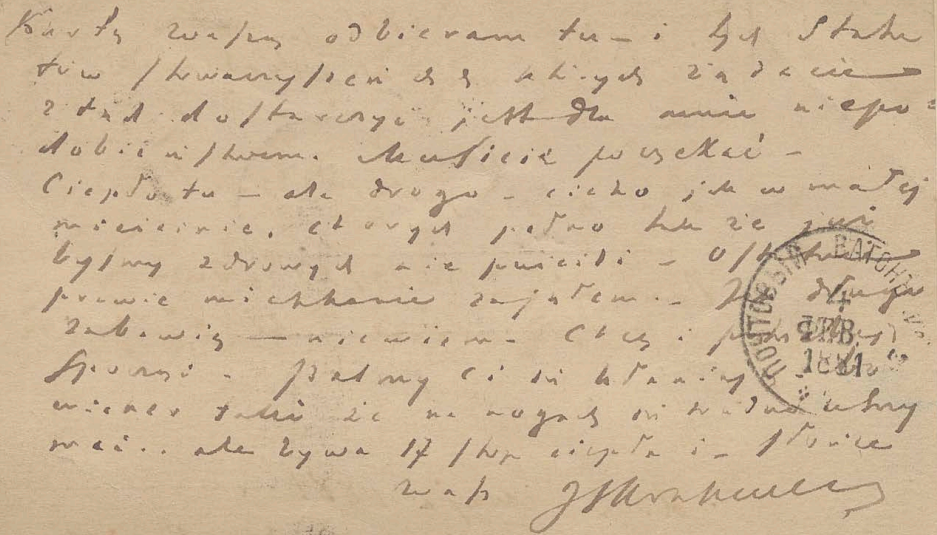 Kartę waszą odbieram tu – i tych Statu
tów stowarzyszeń których żądacie
z tąd dostarczyć jest dla mnie niepo
dobieństwem. Musicie poczekać –
Ciepło tu – ale drogo – cicho jak w małej
mieścinie, chorych pełno tak że już
byśmy zdrowych nie puścili – Ostatnie
prawie mieszkanie zająłem. – Jak długo
zabawię – niewiem. Chcę i
Palmy Ci się kłaniają
wicher taki że na nogach się trudno utrzy
mać.. ale bywa 17 stop. ciepła i – słońce
wasz JIKraszewski
ПОЧТОВЫЙ ВАГОНЪ
4
ФЕВ
1881